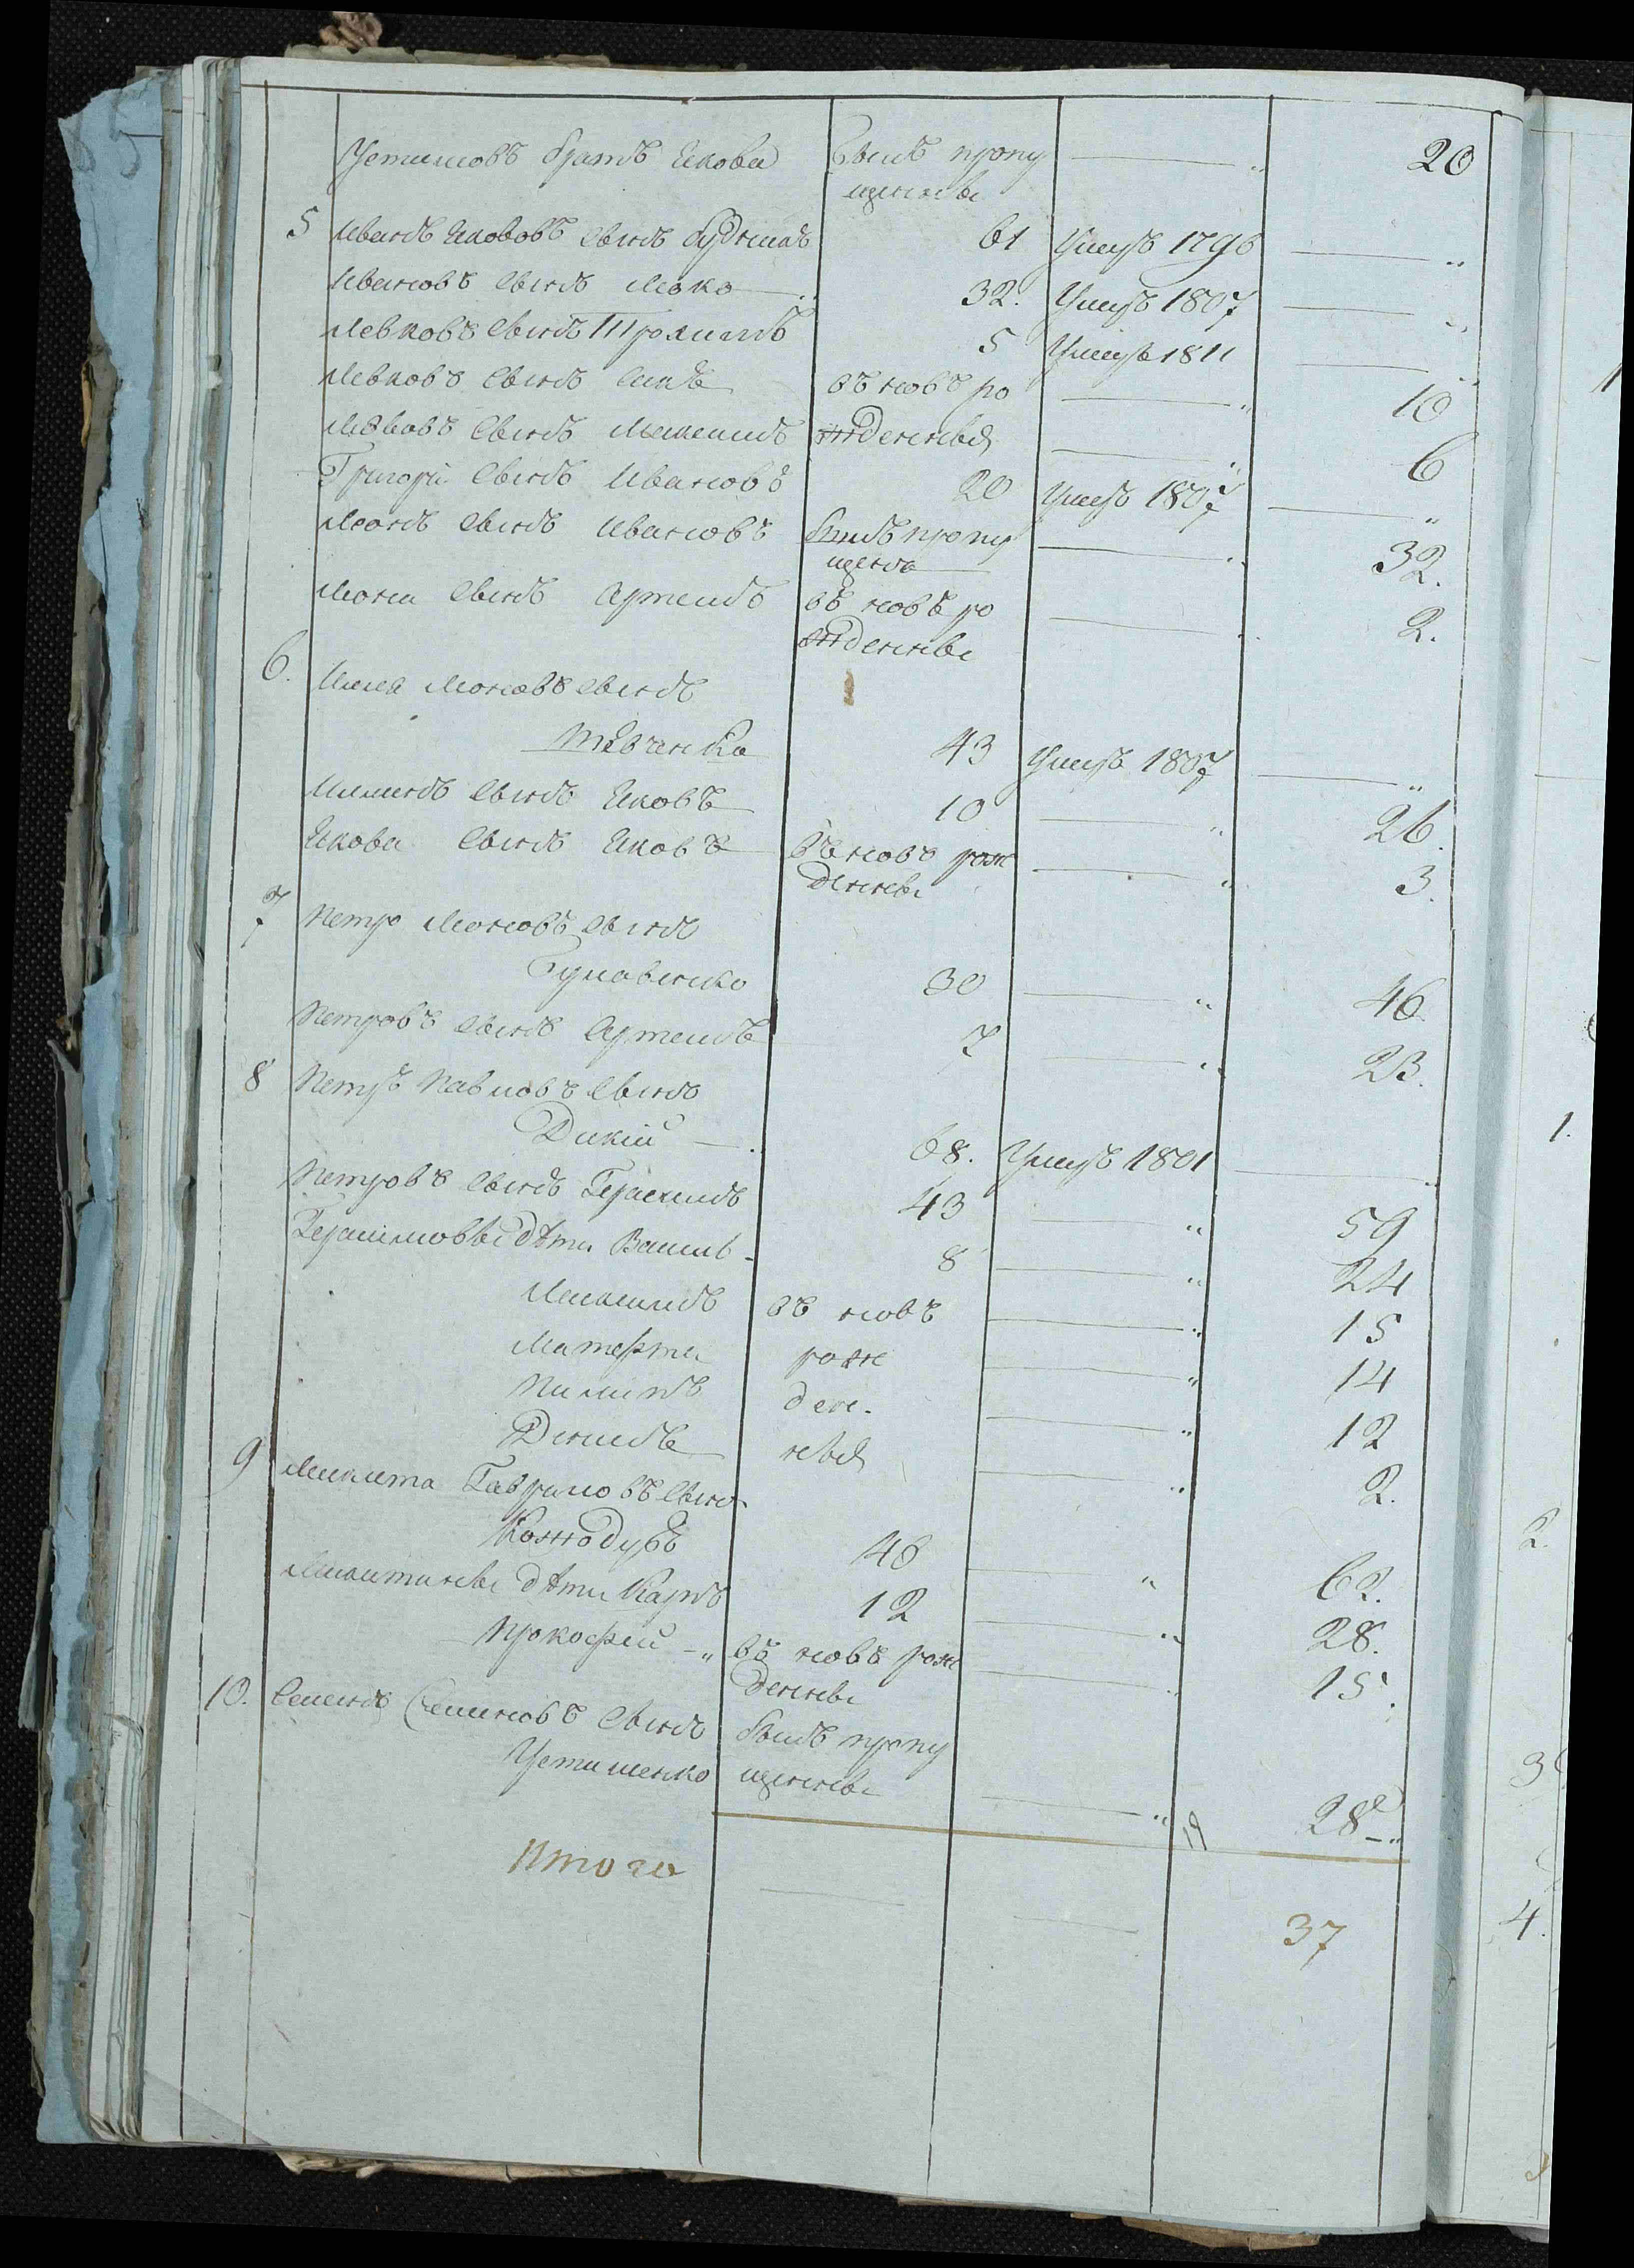 Устимовъ братъ Якова былъ пропу ———„ 20
щенны
5 Иванъ Яковъ сынъ 61 Умеръ 1796 ———„
Ивановъ сынъ Левко 32. Умеръ 1807 ———„
Левковъ сынъ Трохимъ 5 Умеръ 1811 ———„
Левковъ сынъ въ новъ ро ———„ 10
Левковъ сынъ Максимъ жденныя ———„ 6
Григорій сынъ Ивановъ 20 Умеръ 1807 ———„
сынъ Ивановъ былъ пропу ———„ 32.
щенъ
сынъ Артемъ въ новъ ро ———„ 2.
жденны
6. Илля сынъ
Шевченко 43 Умеръ 1807 ———„
Иллинъ сынъ Яковъ 10 ———„ 26.
Якова сынъ Яковъ въ новъ рож ———„ 3.
денны
7 Петро сынъ
30 ———„ 46
Петровъ сынъ Артемъ 7 ———„ 23.
8 Петръ Павловъ сынъ
Дикій 68. Умеръ 1801 ———„
Петровъ сынъ Герасимъ 43 ———„ 59
Герасимовы дѣти Василь 8 ———„ 24
Максимъ въ новъ ———„ 15
рож ———„ 14
Пилипъ ден- ———„ 12
Денисъ ныя ———„ 2.
9 Микита Гавриловъ сынъ
Кожодубъ 46 ———„ 62.
Микитины дѣти Карпъ 12 ———„ 28.
Прокофей въ новъ рож ———„ 15.
денны
10. Семенъ Семеновъ сынъ былъ пропу
Устименко щенны ———„ 28
19
Итого — — 37